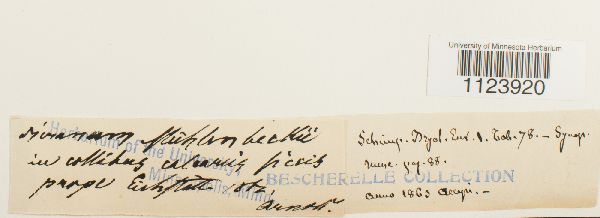 University of Minnesota Herbarium
1123920
Dicranum Mühlenbeckii
in collibus apricis siccis
prope Eichstätt
Arnold.
Herbarium of the University,
Minneapolis, Minn.
Schimp. Bryol. Eur. 1. Tab. 78. – Synops.
musc. pag. 88.
BESCHERELLE COLLECTION
anno 1863 accepi. –